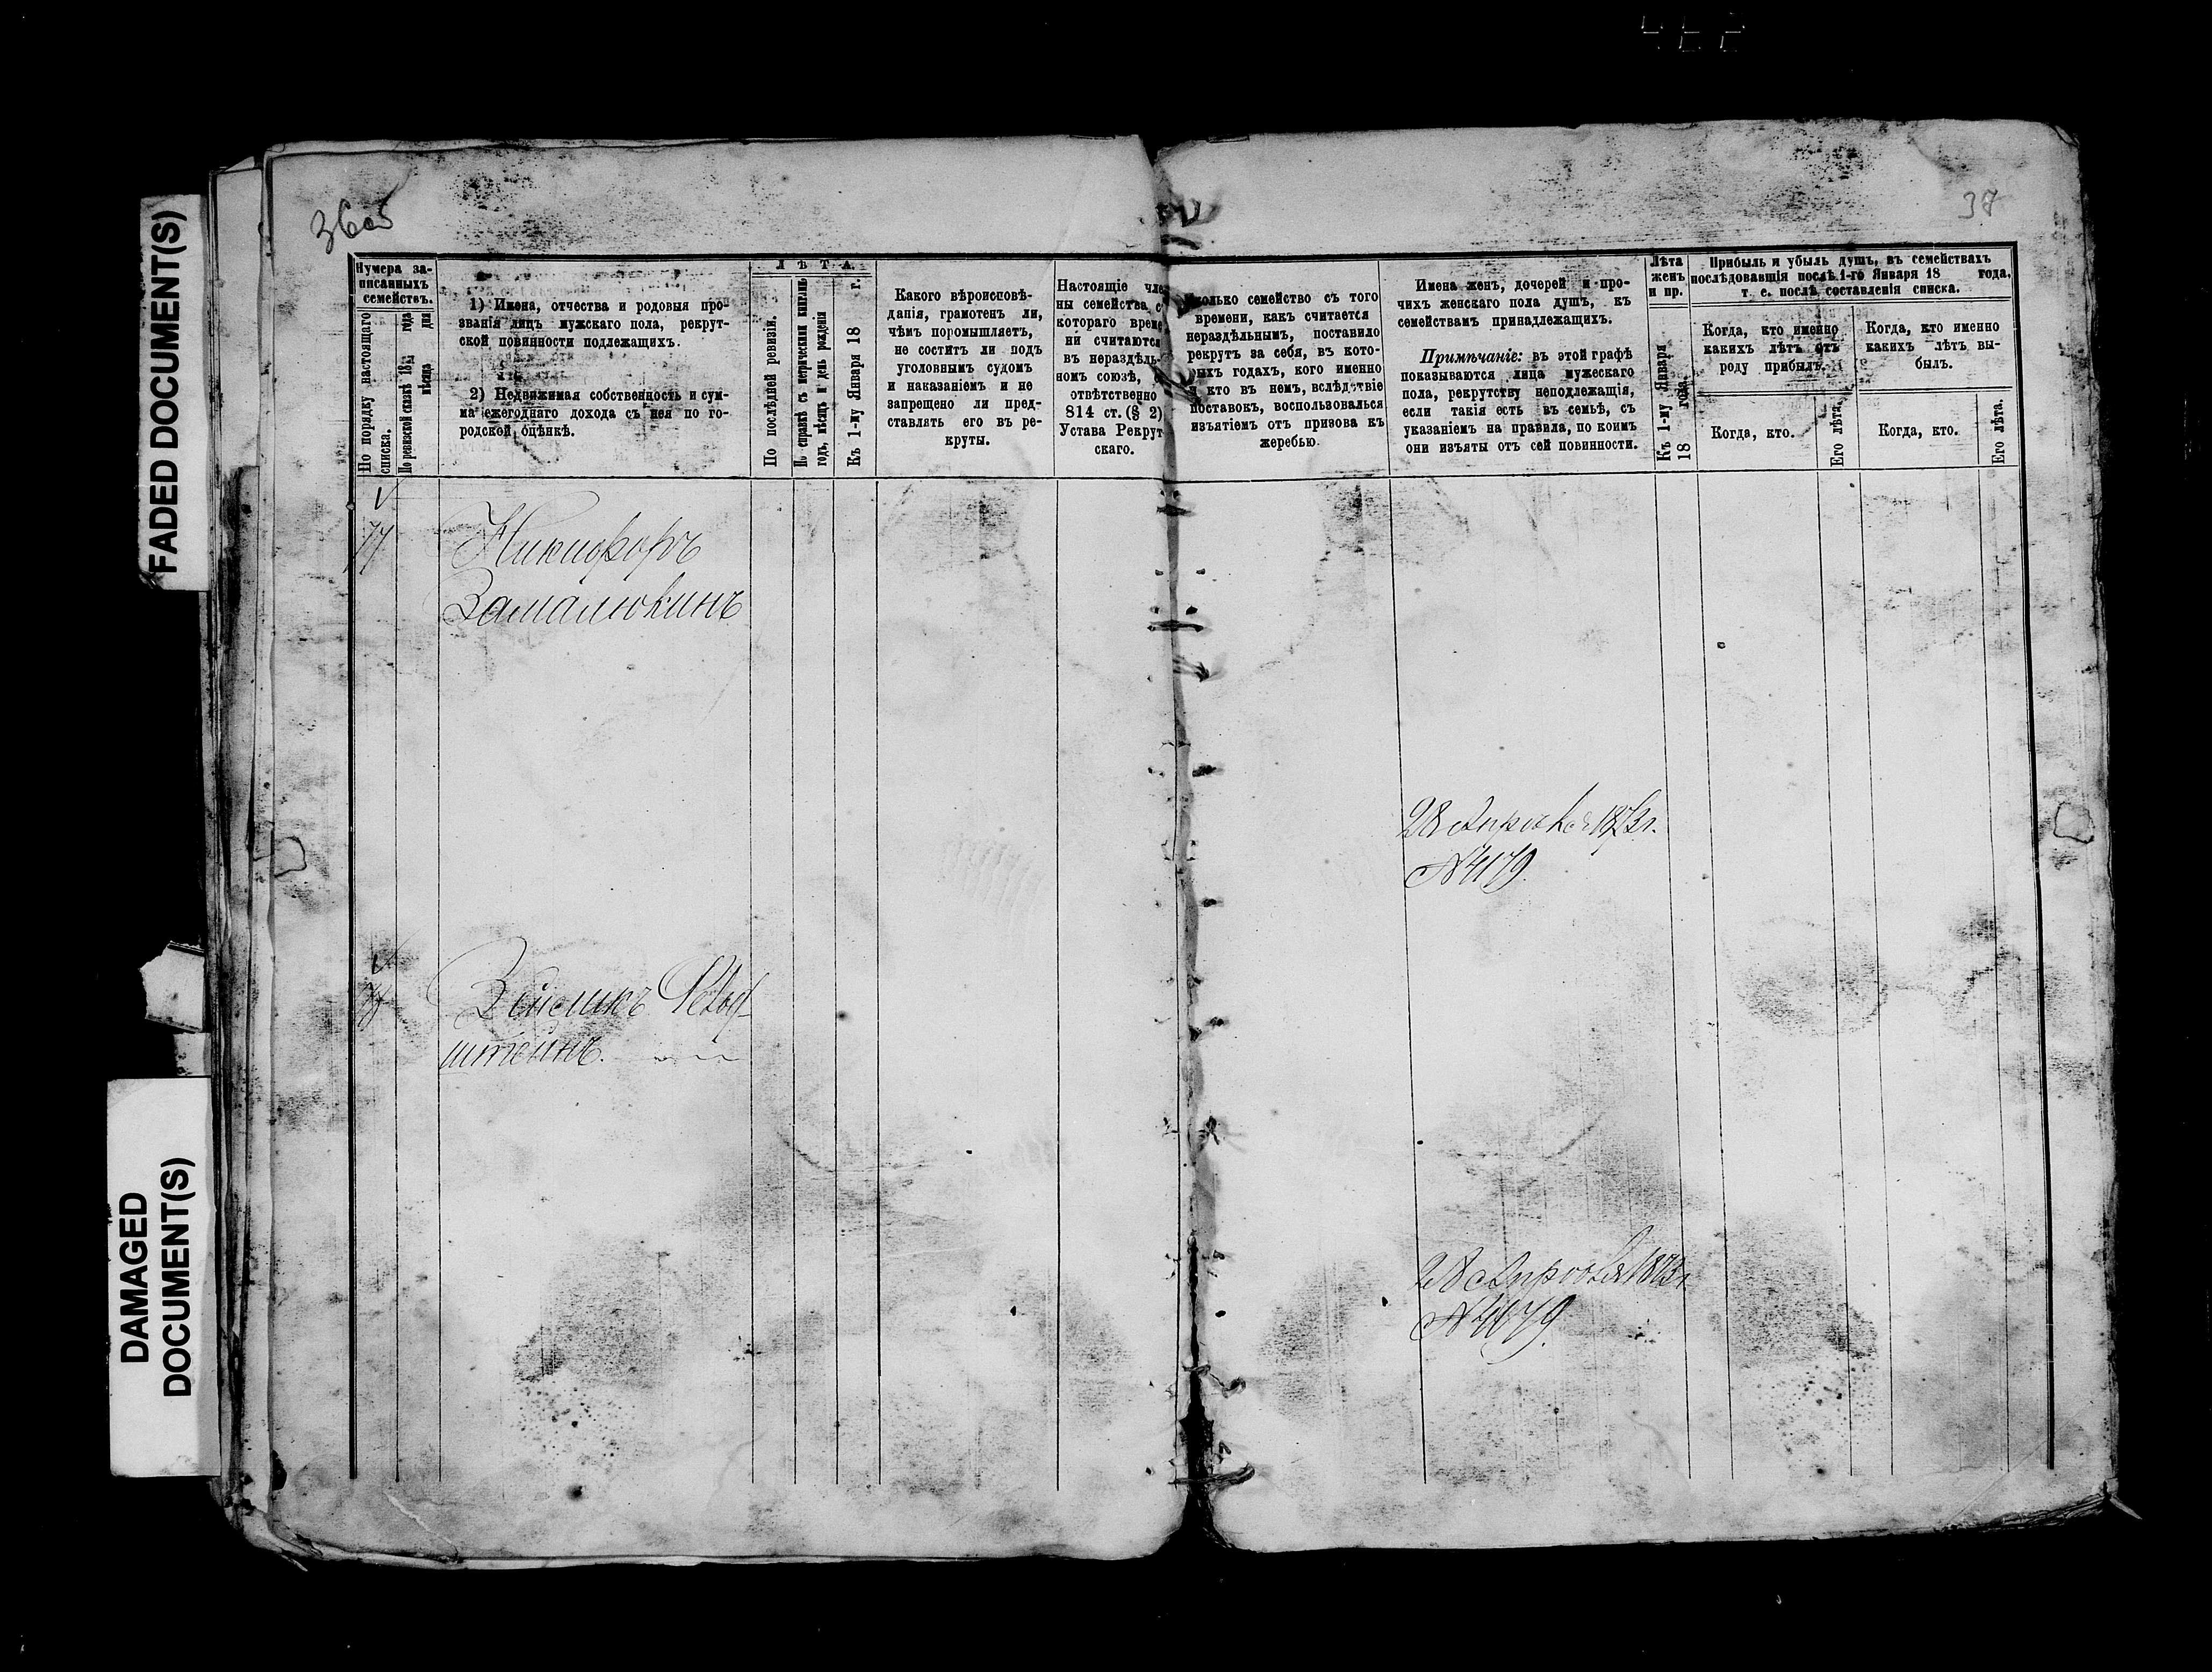 FADED DOCUMENT(S)
DAMAGED
DOCUMENT(S)
36об
37
Нумера за-
писанныхъ
семействъ.
По порядку настоящаго
списка.
По ревизской сказкѣ 18 года
мѣсяца дня
1) Имена, отчества и родовыя про-
званія лицъ мужскаго пола, рекрут-
ской повинности подлежащихъ.
2) Недвижимая собственность и сум-
ма ежегоднаго дохода съ нея по го-
родской оцѣнкѣ.
ЛѢТА.
По послѣдней ревизіи.
По справкѣ съ метрическими книгами
годъ, мѣсяцъ и день рожденія
Къ 1-му Января 18 г.
Какого вѣроисповѣ-
данія, грамотенъ ли,
чѣмъ поромышляетъ,
не соститъ ли подъ
уголовнымъ судомъ
и наказаніемъ и не
запрещено ли пред-
ставлять его въ ре-
круты.
Настоящіе чле
ны семейства, с
котораго време
ни считаются
въ нераздѣль-
номъ союзѣ,
отвѣтственно
814 ст. (§ 2)
Устава Рекрут
скаго.
колько семейство съ того
времени, какъ считается
нераздѣльнымъ, поставило
рекрутъ за себя, въ кото-
рыхъ годахъ, кого именно
и кто въ немъ, вслѣдствіе
поставокъ, воспользовался
изъятіемъ отъ призова къ
жеребью.
Имена женъ, дочерей и про-
чихъ женскаго пола душъ, къ
семействамъ принадлежащихъ.
Примѣчаніе: въ этой графѣ
показываются лица мужескаго
пола, рекрутству неподлежащія,
если такія есть въ семьѣ, съ
указаніемъ на правила, по коимъ
они изъяты отъ сей повинности.
Лѣта
женъ
и пр.
Къ 1-му Января
18 года.
Прибыль и убыль душъ, въ семействахъ
послѣдовавшія послѣ 1-го Января 18 года,
т. е. послѣ составленія списка.
Когда, кто именно
какихъ лѣтъ отъ
роду прибылъ.
Когда, кто именно
какихъ лѣтъ вы-
былъ.
Когда, кто.
Его лѣта.
Когда, кто.
Его лѣта.
77
Никифоръ
Замалюкинъ
28 Апрѣля 1873 г.
№ 4179.
78
штейнъ.
28 Апрѣля 1873 г.
№ 4179.